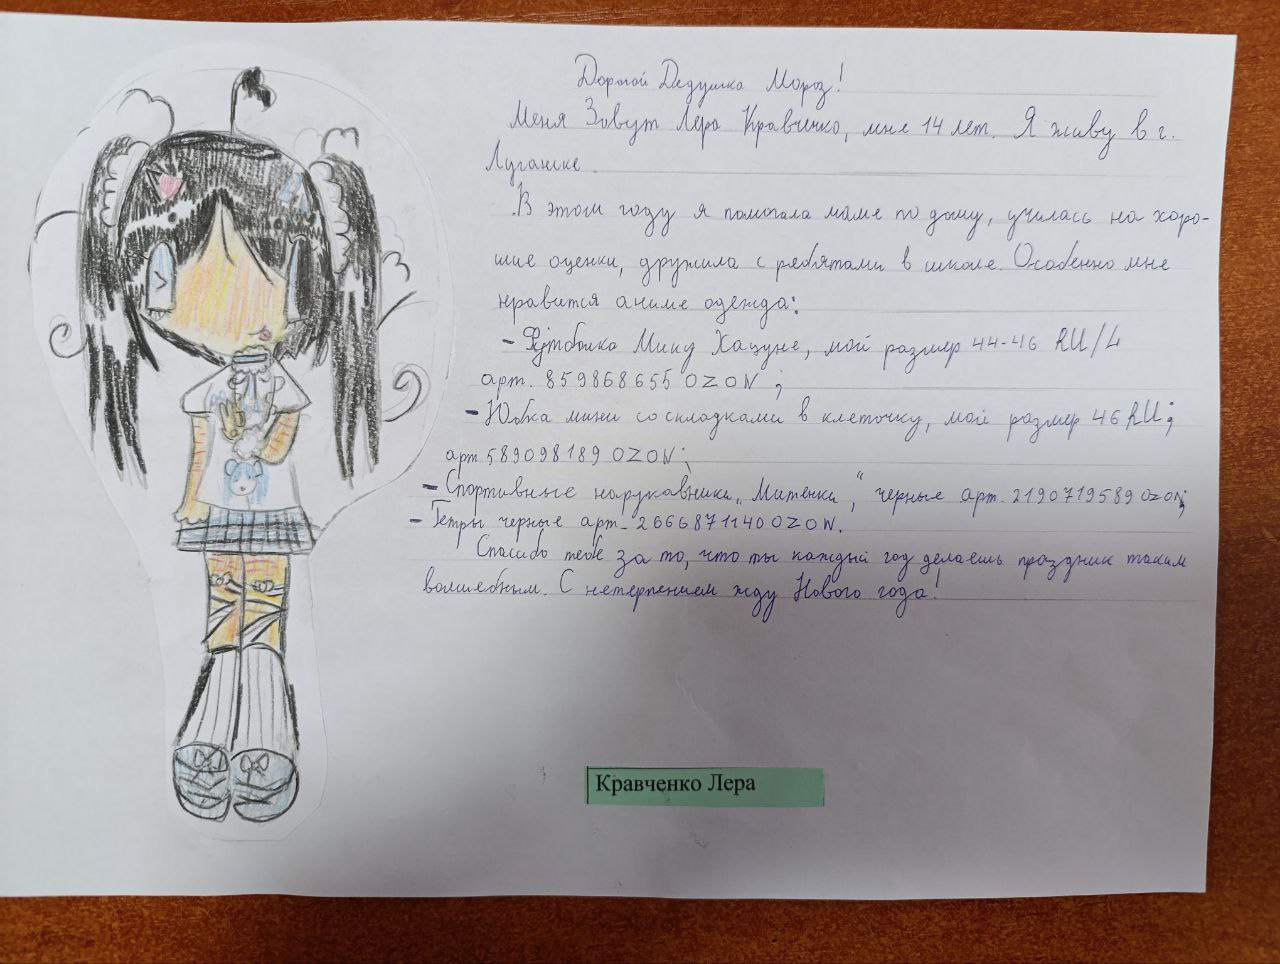 Дорогой Дедушка Мороз!
Меня Зовут Лера Кравченко, мне 14 лет. Я живу в г.
Луганске.
В этом году я помогала маме по дому, училась на хоро-
шие оценки, дружила с ребятами в школе. Особенно мне
нравится аниме одежда:
- Футболка Мику Хацуне, мой размер 44-46 RU/L
арт. 859868655 OZON;
- Юбка мини со складками в клеточку, мой размер 46 RU;
арт 589098189 OZON;
- Спортивные нарукавники „Митенки“, черные арт. 2190719589 OZON;
- Гетры черные арт- 2666871140 OZON.
Спасибо тебе за то, что ты каждый год делаешь праздник таким
волшебным. С нетерпением жду Нового года!
Кравченко Лера